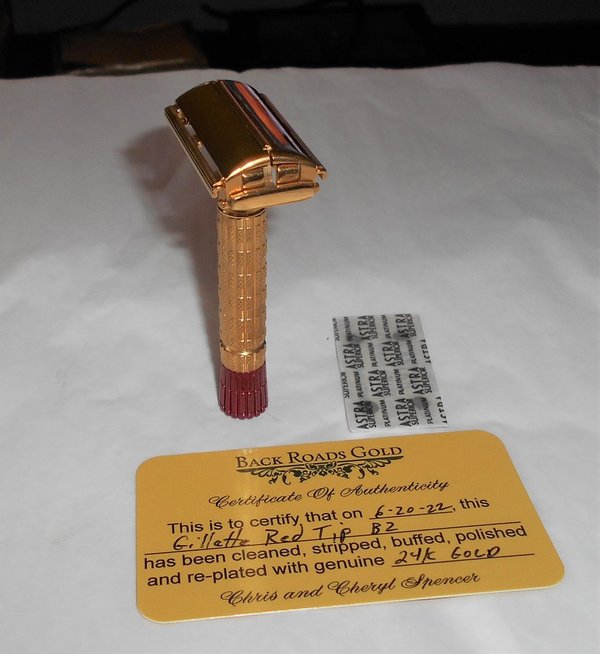 ASTRA
PLATINUM
SUPERIOR
ASTRA
PLATINUM
SUPERIOR
ASTRA
PLATINUM
SUPERIOR
ASTRA
BACK ROADS GOLD
Certificate Of Authenticity
This is to certify that on 6-20-22, this
Gillette Red Tip B2
has been cleaned, stripped, buffed, polished
and re-plated with genuine 24K GOLD
Chris and Cheryl Spencer